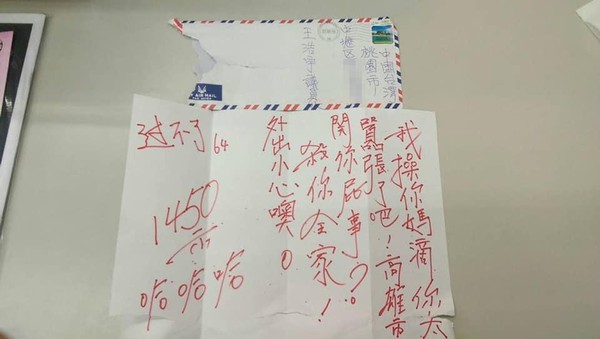 中國台灣
桃園市
中壢區
王浩宇議員
AIR MAIL
我操你媽滴你太
囂張了吧！高雄市
關你屁事？
殺你全家！
外出小心噢。
过不了64
1450
哈哈哈